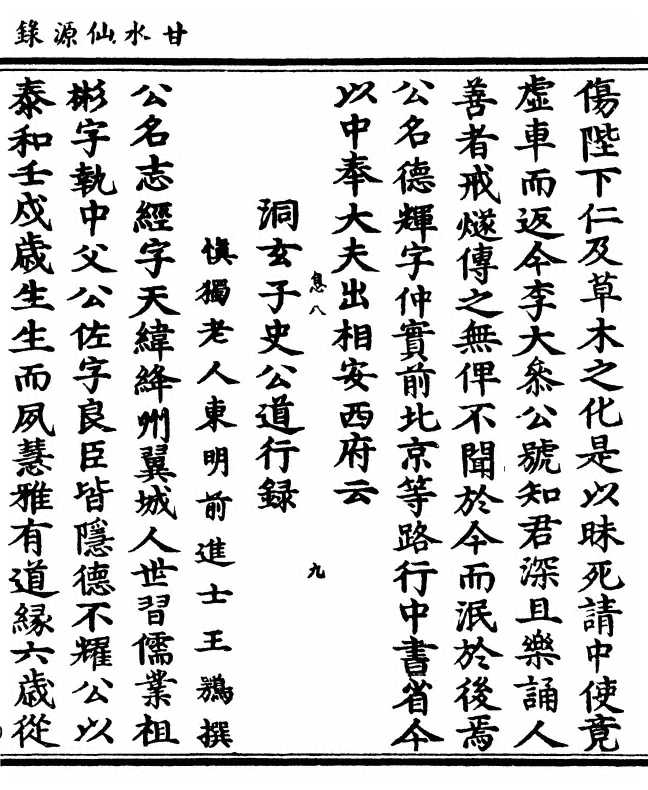 甘水仙源錄
傷陛下仁及草木之化是以昧死請中使竟
虛車而返今李大叅公號知君深且樂誦人
善者戒燧傳之無俾不聞於今而泯於後焉
公名德輝字仲實前北京等路行中書省今
以中奉大夫出相安西府云
息八
九
洞玄子史公道行録
愼獨老人東明前進士王鶚撰
公名志經字天緯絳州翼城人世習儒業祖
彬字執中父公佐字良臣皆隱德不耀公以
泰和壬戍歲生生而夙慧雅有道緣六歲從